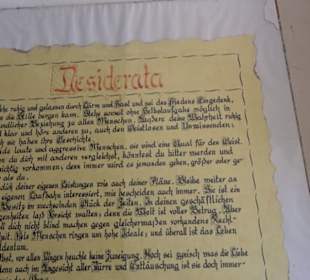 Desiderata
ruhig und gelassen durch Lärm und Hast und sei des Friedens eingedenk,
die Stille bergen kann. Stehe soweit ohne Selbstaufgabe möglich in
freundlicher Beziehung zu allen Menschen. Äußere deine Wahrheit ruhig
und klar und höre anderen zu, auch den Geistlosen und Unwissenden;
auch sie haben ihre Geschichte.
laute und aggressive Menschen, sie sind eine Qual für den Geist.
du dich mit anderen vergleichst, könntest du bitter werden und
nichtig vorkommen; denn immer wird es jemanden geben, größer oder
als du.
dich deiner eigenen Leistungen wie auch deiner Pläne. Bleibe weiter an
eigenen Laufbahn interessiert, wie bescheiden auch immer. Sie ist ein
Besitz im wechselnden Glück der Zeiten. In deinen geschäftlichen
laß Vorsicht walten; denn die Welt ist voller Betrug. Aber
dich nicht blind machen gegen gleichermaßen vorhandene
Viele Menschen ringen um hohe Ideale; und überall ist das Leben
Heldentum.
selbst, vor allen Dingen heuchle keine Zuneigung. Noch sei zynisch was die Liebe
denn auch im Angesicht aller Dürre und Enttäuschung ist sie doch immer